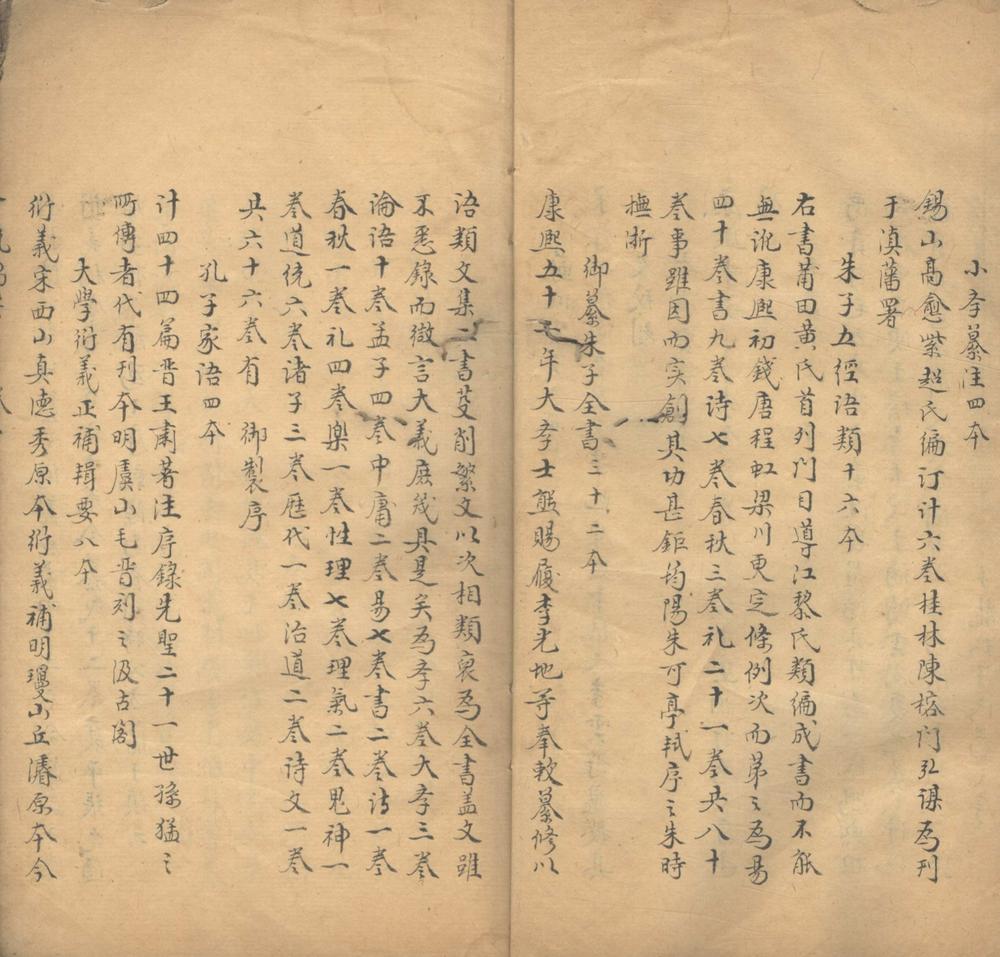 小孝纂注四本
錫山高愈紫超氏編訂計六卷桂林陳榕门弘谋為刊
于滇藩署
朱子五径语類十六本
右書莆田黄氏首列门目導江黎氏類編成書而不能
無訛康熙初錢唐程虹梁川更定條例次而第之為易
四十卷書九卷诗七卷春秋三卷礼二十一卷共八十
卷事雖因而实創其功甚鉅均陽朱可亭軾序之朱時
撫浙
御纂朱子全書三十二本
康熙五十年大孝士熊賜履李光地等奉敕纂修以
语類文集二書芟削繁文以次相類裒為全書盖文雖
不悉錄而微言大義庶幾具是矣為孝六卷大孝三卷
論语十卷孟子四卷中庸二卷易七卷書二卷诗一卷
春秋一卷礼四卷樂一卷性理七卷理氣二卷鬼神一
卷道统六卷诸子三卷歷代一卷治道二卷诗文一卷
共六十六卷有 御製序
孔子家语四本
计四十四篇晋王肅著注序錄先聖二十一世孫猛之
所傳者代有刊本明虞山毛晋刻之汲古阁
大學衍義正補輯要八本
衍義宋西山真德秀原本衍義補明瓊山丘濬原本今